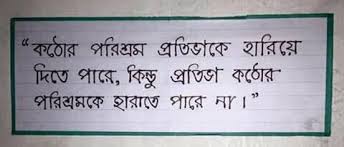 “কঠোর পরিশ্রম প্রতিভাকে হারিয়ে
দিতে পারে, কিন্তু প্রতিভা কঠোর
পরিশ্রমকে হারাতে পারে না।”